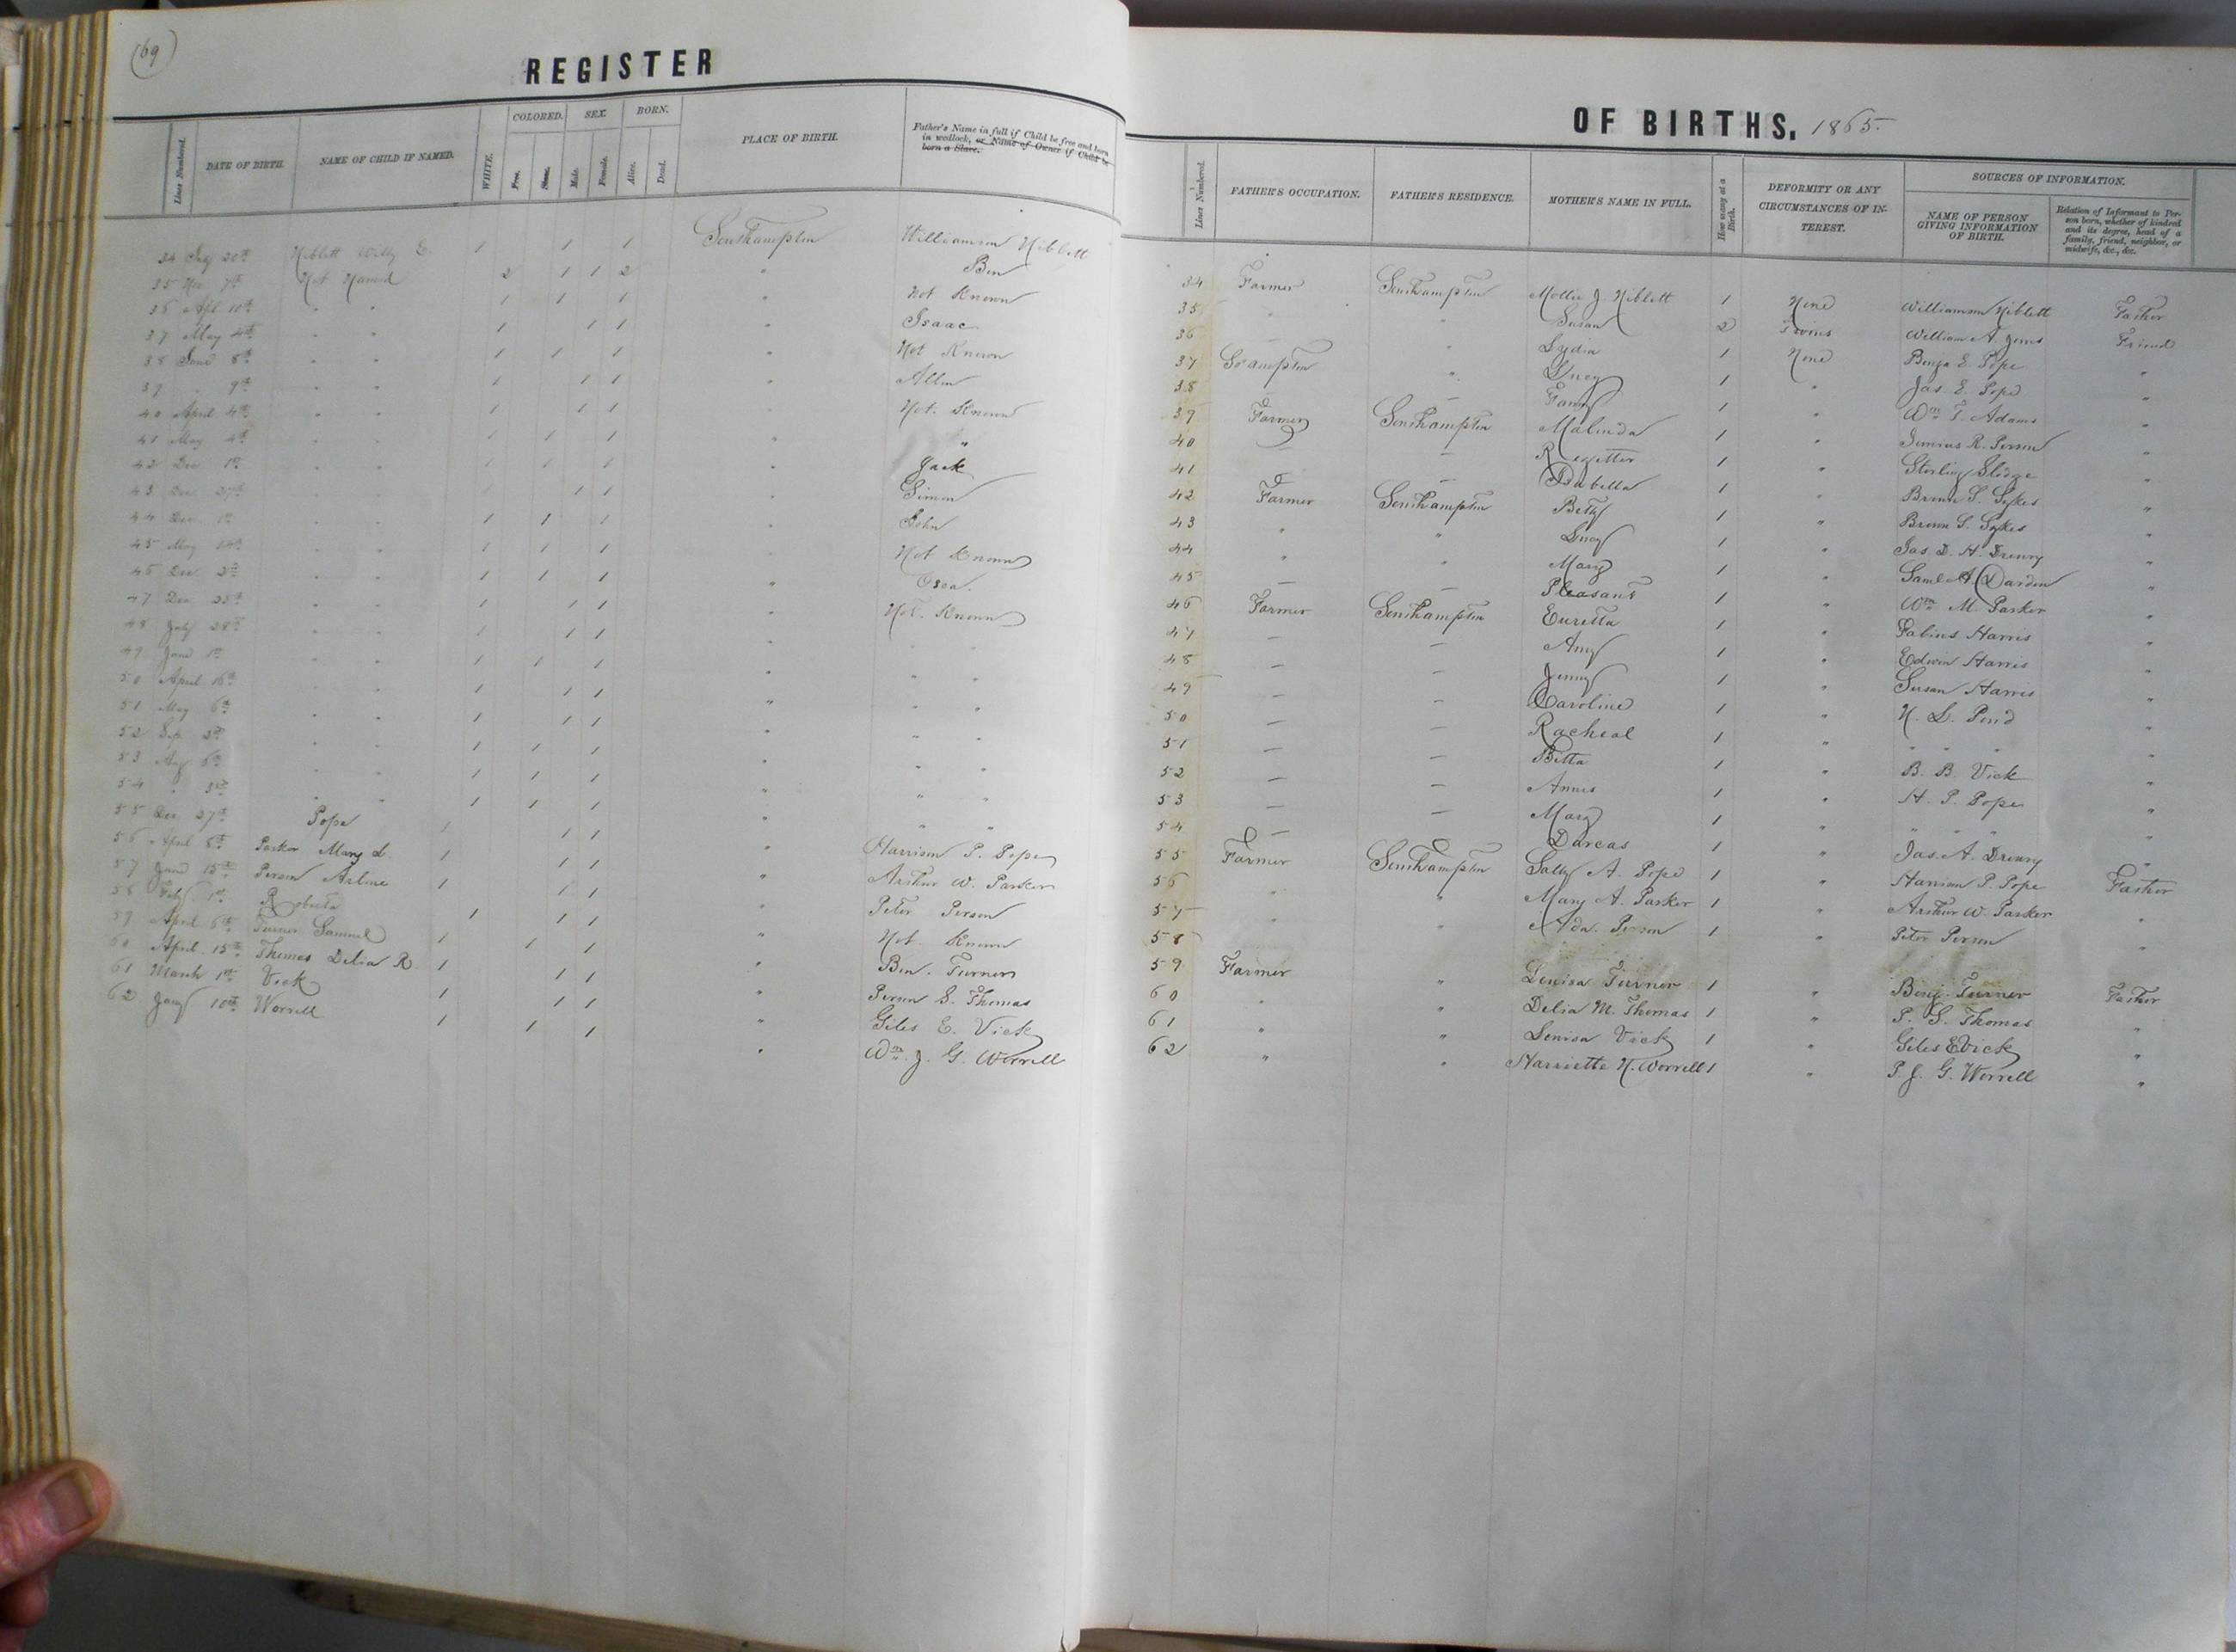 (69)
REGISTER
Lines Numbered.
DATE OF BIRTH.
NAME OF CHILD IF NAMED.
WHITE.
COLORED.
Free.
Slave.
SEX.
Male.
Female.
BORN.
Alive.
Dead.
PLACE OF BIRTH.
Father's Name in full if Child be free and born
in wedlock, or Name of Owner if Child be
born a Slave.
34 20th Niblett Willy E. 1 1 1 Southampton Williamson Niblett
35 7th Not Named 2 1 1 2 " Ben
36 Apl 10th " " 1 1 1 " Not Known
37 May 4th " " 1 1 1 " Isaac
38 June 8th " " 1 1 1 " Not Known
39 " 9th " " 1 1 1 " Allen
40 April 4th " " 1 1 1 " Not Known
41 May 4th " " 1 1 1 " "
42 Dec 1st " " 1 1 1 " Jack
43 Dec 27th " " 1 1 1 " Simon
44 Dec. 1st " " 1 1 1 " John
45 May 14th " " 1 1 1 " Not Known
46 Dec " " 1 1 1 "
47 Dec 25th " " 1 1 1 " Not Known
48 July 28th " " 1 1 1 " " "
49 June 1st " " 1 1 1 " " "
50 April 16th " " 1 1 1 " " "
51 May 6th " " 1 1 1 " " "
52 Sep. " " 1 1 1 " " "
53 Aug " " 1 1 1 " " "
54 " " " 1 1 1 " " "
55 Dec. 27th Pope 1 1 1 " Harrison P. Pope
56 April 8th Parker Mary L. 1 1 1 " Arthur W. Parker
57 June 15th Person Arline 1 1 1 " Peter Person
58 Feby. 1st Roberta 1 1 1 " Not Known
59 April 6th Turner Samuel 1 1 1 " Ben. Turner
60 April 15th Thomas Delia R. 1 1 1 " Person S. Thomas
61 March 1st Vick 1 1 1 " Giles E. Vick
62 Jany 10th Worrell 1 1 1 " Wm. J. G. Worrell
OF BIRTHS, 1865.
Lines Numbered.
FATHER'S OCCUPATION.
FATHER'S RESIDENCE.
MOTHER'S NAME IN FULL.
How many at a
Birth.
DEFORMITY OR ANY
CIRCUMSTANCES OF IN-
TEREST.
SOURCES OF INFORMATION.
NAME OF PERSON
GIVING INFORMATION
OF BIRTH.
Relation of Informant to Per-
son born, whether of kindred
and its degree, head of a
family, friend, neighbor, or
midwife, &c., &c.
34 Farmer Southampton Mollie J. Niblett 1 None Williamson Niblett Father
35 " " Susan 2 Twins William A. Jones Friend
36 " Lydia 1 None Benja E. Pope "
37 " Lucy 1 " Jas. E. Pope "
38 — Fanny 1 " Wm T. Adams "
39 Farmer Southampton Malinda 1 " Junius R. Person "
40 — — 1 " Sterling Sledge "
41 — 1 " Brown S. Sykes "
42 Farmer Southampton Betty 1 " Brown S. Sykes "
43 " " Lucy 1 " Jas. D. H. Drewry "
44 " " Mary 1 " Saml A. Darden "
45 — — Pleasant 1 " Wm M. Parker "
46 Farmer Southampton Euretta 1 " Fabius Harris "
47 — — Amy 1 " Edwin Harris "
48 — — Jenny 1 " Susan Harris "
49 — — Caroline 1 "
50 — — Racheal 1 " " " "
51 — — Bitta 1 " B. B. Vick "
52 — — Annis 1 " H. P. Pope "
53 — — Mary 1 " " " "
54 — Darcas 1 " Jas. A. Drewry "
55 Farmer Southampton Sally A. Pope 1 " Harrison P. Pope Father
56 " " Mary A. Parker 1 " Arthur W. Parker "
57 " " Ada. Person 1 " Peter Person "
58
59 Farmer " Louisa Turner 1 " Benj. Turner Father
60 " " Delia M. Thomas 1 " P. S. Thomas "
61 " " Louisa Vick 1 " Giles E Vick "
62 " " Harriette N. Worrell 1 " P. J. G. Worrell "